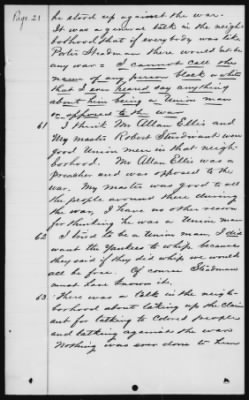 Page 21
he stood up against the war.
It was a general talk in the neigh-
borhood, that if everybody was like
Porter Steadman there would not be
any war = I cannot call the
name of any person black or white
that I ever heard say anything
about him being a Union man
or opposed to the war
61 I think Mr Allan Ellis and
My master Robert Studivant were
good Union men in that neigh-
borhood. Mr Allan Ellis was a
preacher and was opposed to the
war. My master was good to all
the people around there during
the war, I have no other reason
for thinking he was a Union man
62 I tried to be a Union man, I did
want the Yankees to whip because
they said if they did whip we would
all be free. Of course Steadman
must have known it.
63 There was a talk in the neigh-
borhood about taking up the claim
ant for talking to Colored people
and talking against the war
Nothing was ever done to them